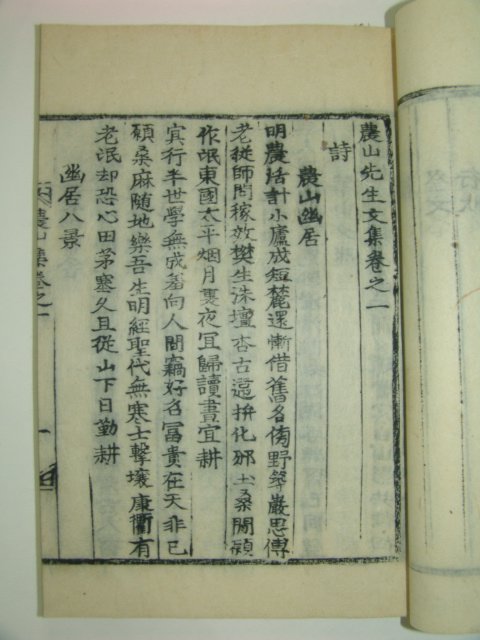 農山先生文集卷之一
詩
農山幽居
明農活計小廬成短麓還慚借舊名傍野築巖思傅
老從師問稼放樊生洙壇杏古遑拚化邠土桑閒願
作氓東國太平烟月裏夜宜歸讀晝宜耕
冥行半世學無成羞向人間竊好名富貴在天非已
願桑麻隨地樂吾生明經聖代無寒士擊壤康衢有
老氓却恐心田茅塞久且從山下日勤耕
幽居八景
農山集卷之一
一